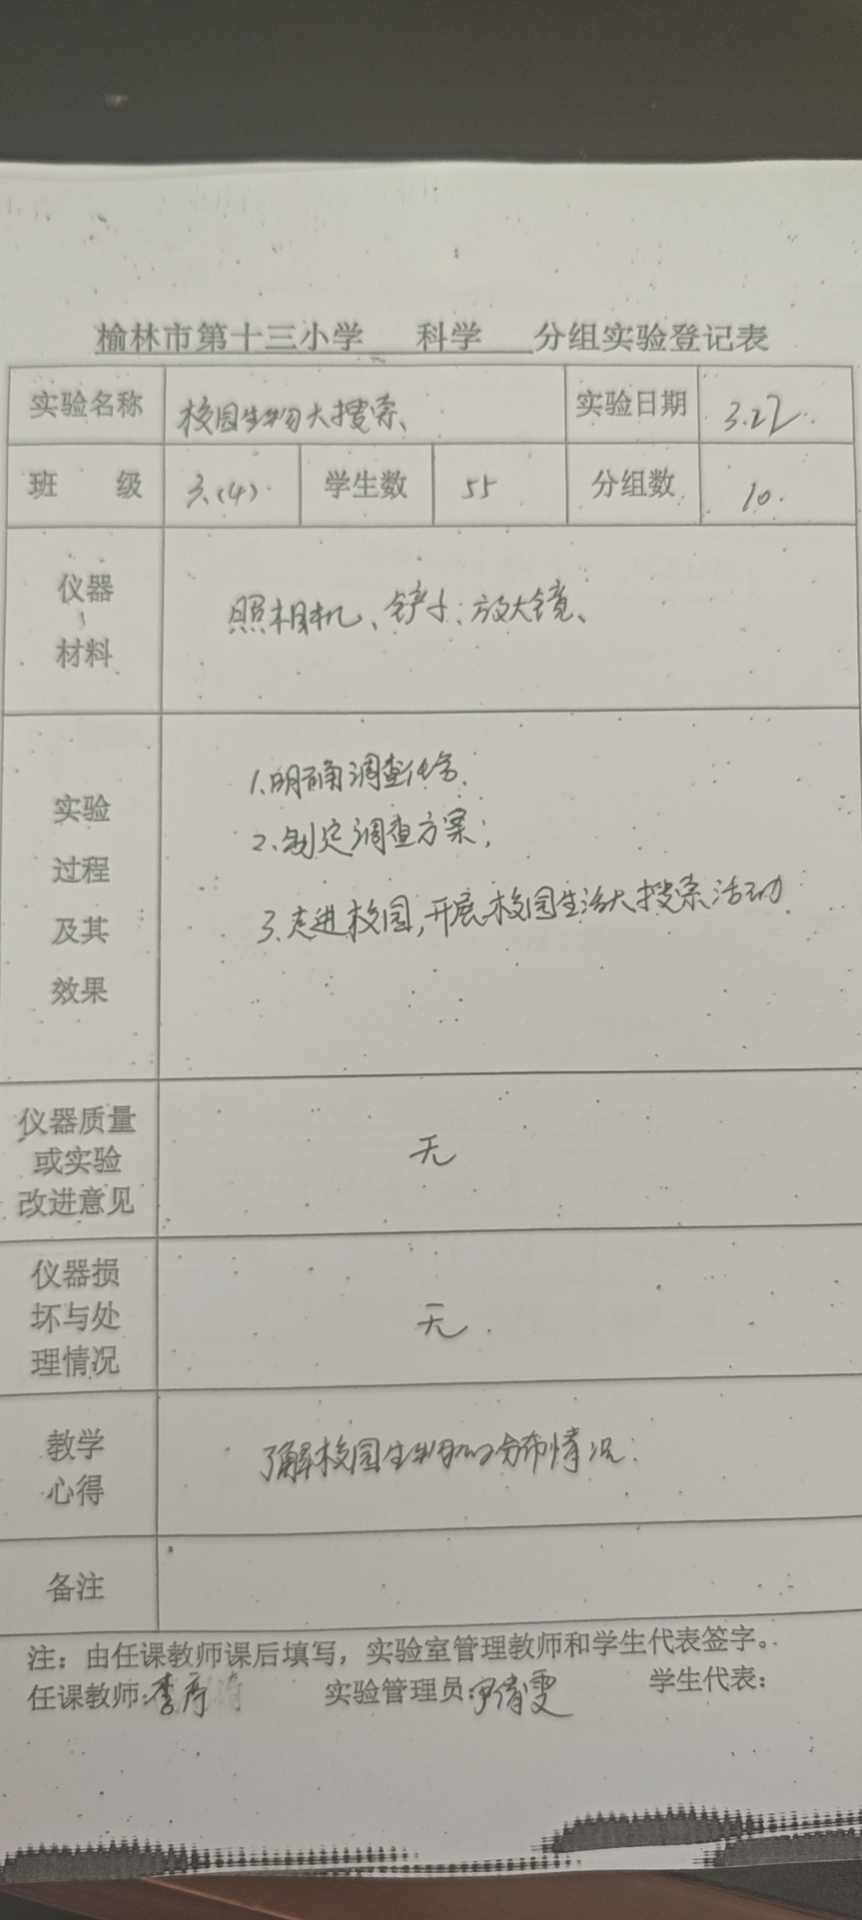 榆林市第十三小学 科学 分组实验登记表
实验名称 校园生物大搜索、 实验日期 3.22.
班 级 三.(4). 学生数 55 分组数 10.
仪器
材料
照相机、铲子、放大镜、
实验
过程
及其
效果
1.明确调查任务.
2.制定调查方案;
3.走进校园,开展校园生活大搜索活动
仪器质量
或实验
改进意见
无
仪器损
坏与处
理情况
无.
教学
心得
了解校园生物的分布情况.
备注
注:由任课教师课后填写,实验室管理教师和学生代表签字。
任课教师:李彦 实验管理员: 学生代表: